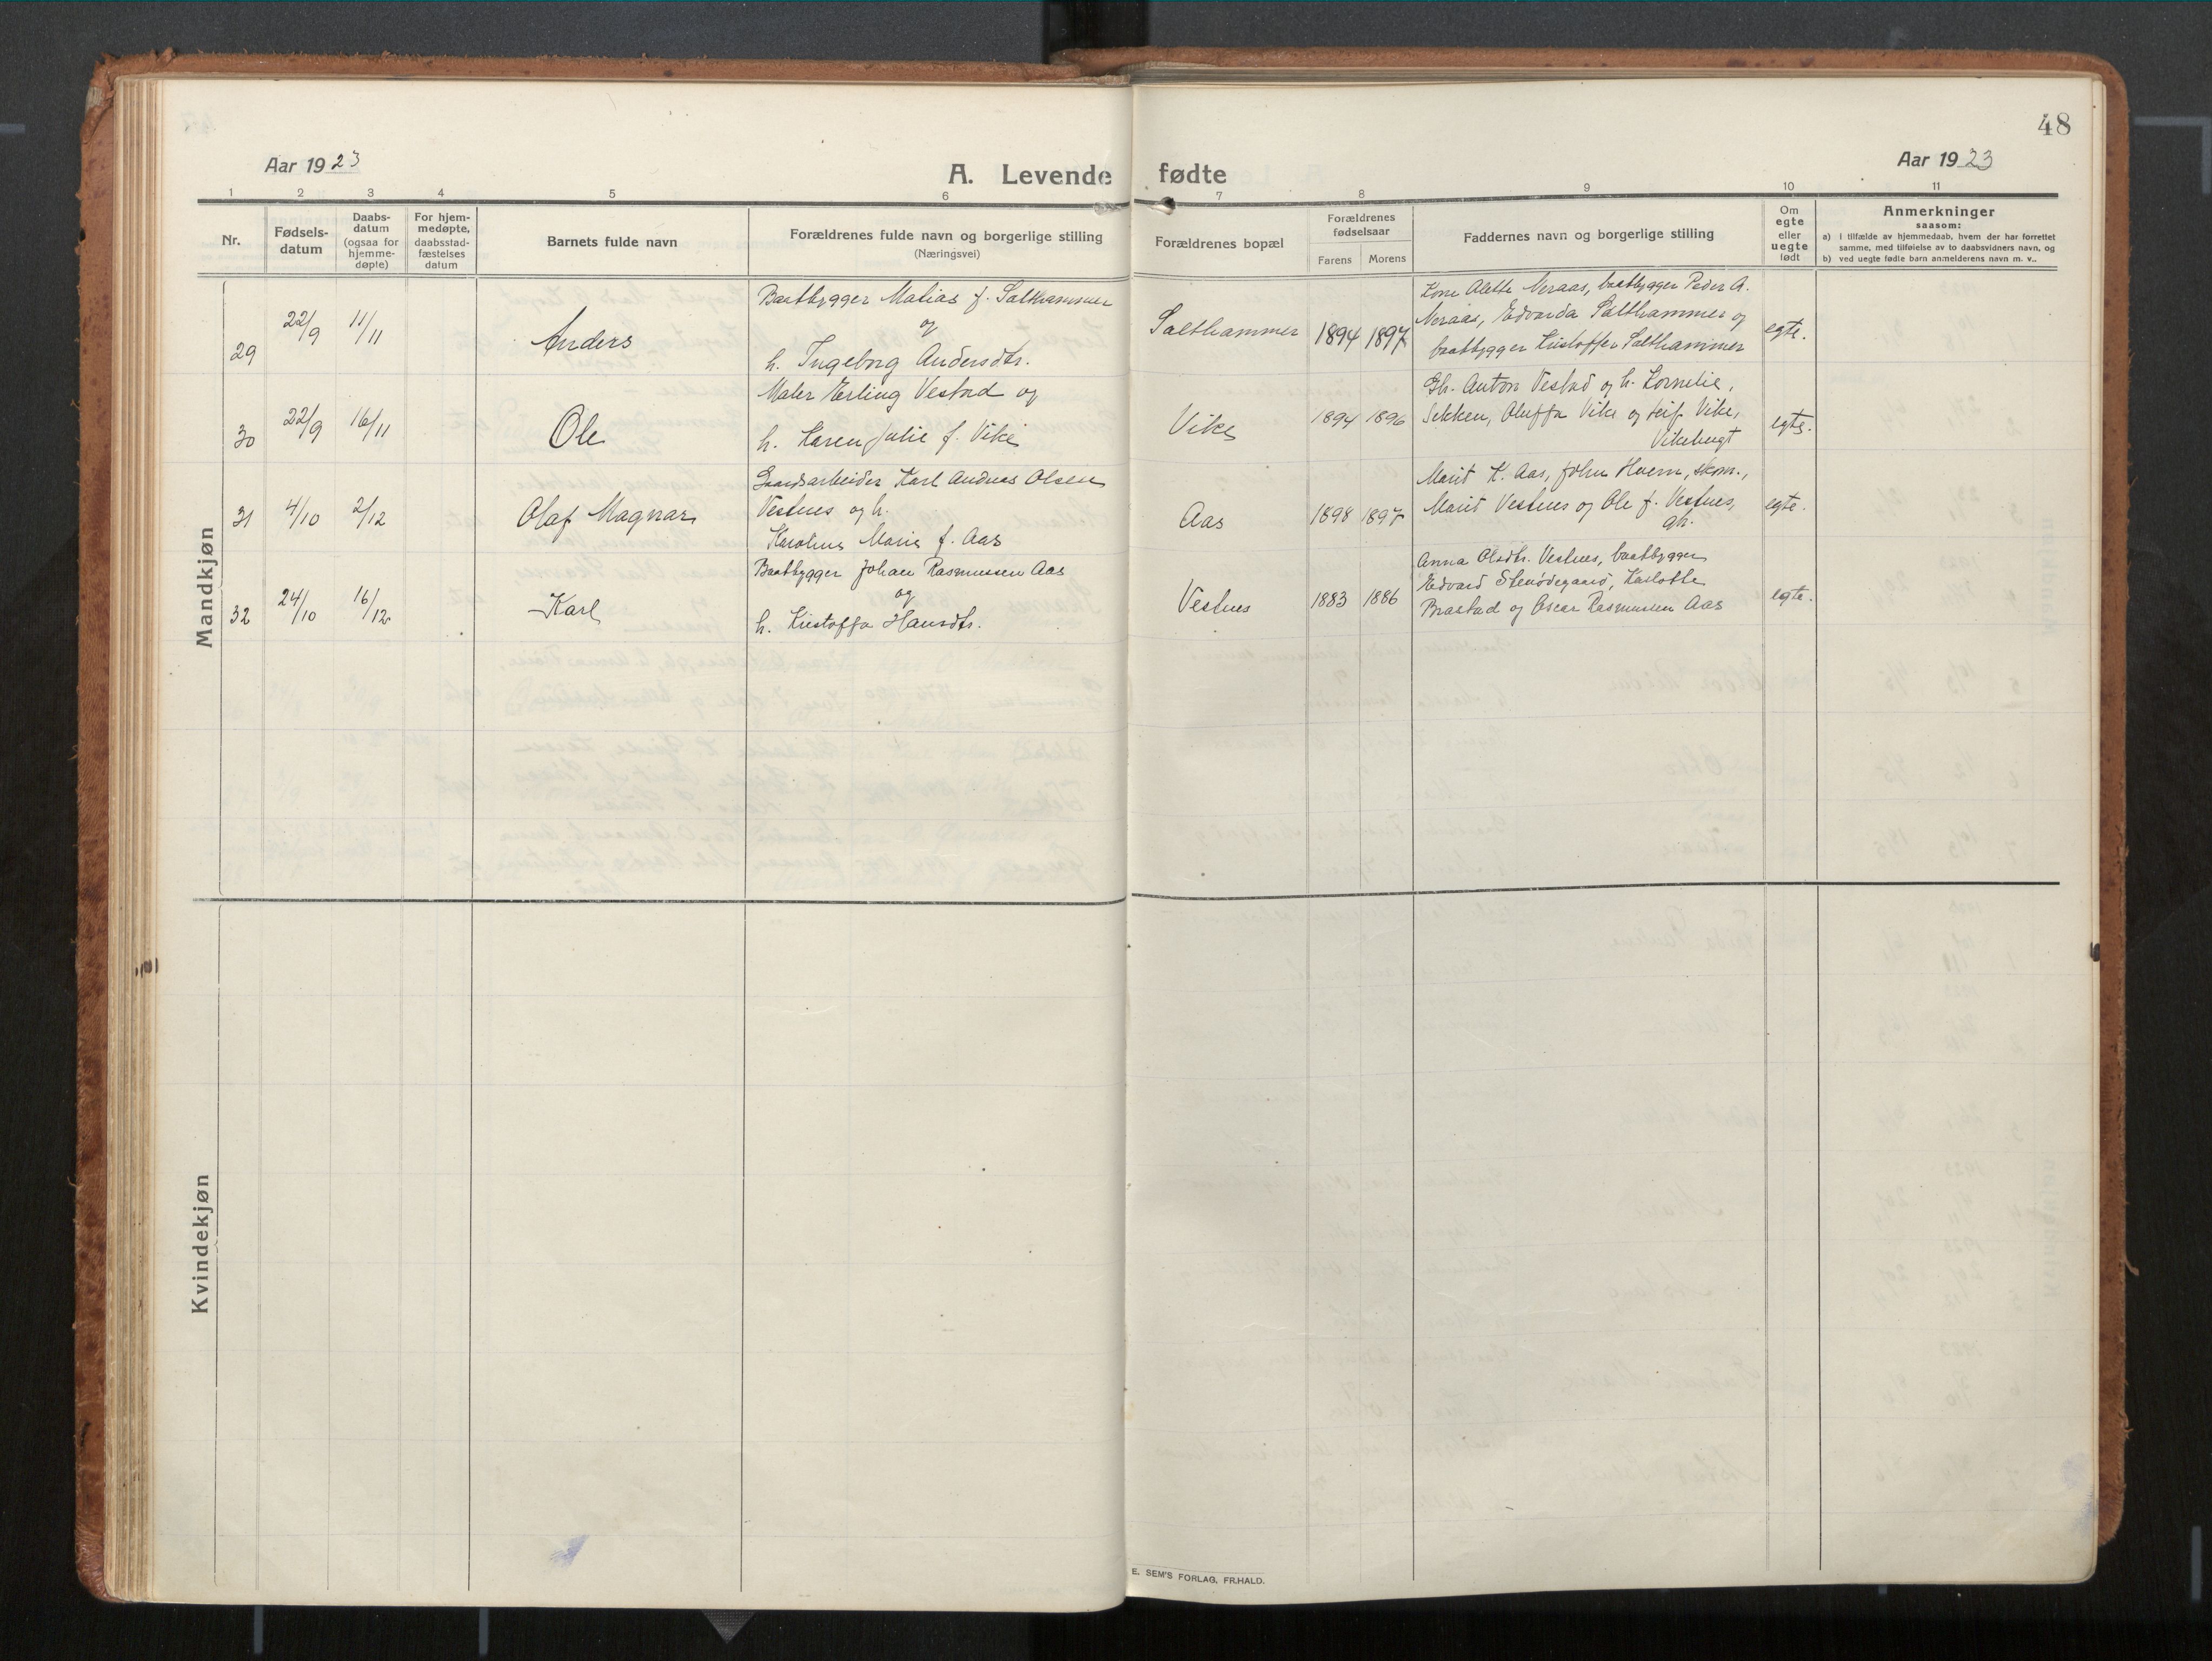 48
Aar 1923
A. Levende fødte
Aar 1923
1 2 3 4 5 6 7 8 9 10 11
Nr.
Fødsels-
datum
Daabs-
datum
(ogsaa for
hjemme-
døpte)
For hjem-
medøpte,
daabsstad-
fæstelses
datum
Barnets fulde navn
Forældrenes fulde navn og borgerlige stilling
(Næringsvei)
Forældrenes bopæl
Forældrenes
fødselsaar
Farens Morens
Faddernes navn og borgerlige stilling
Om
egte
eller
uegte
født
Anmerkninger
saasom:
a) I tilfælde av hjemmedaab, hvem der har forrettet
samme, med tilføielse av to daabsvidners navn, og
b) ved uegte fødte barn anmelderens navn m. v..
Mandkjøn
29
22/9
11/11
Anders
Baatbygger Matias J. Salthammer
og
h. Ingeborg Andersdtr.
Salthammer
1894 1897
Kone Alette Neraas, baatbygger Peder A.
Neraas, Edvarda Salthammer og
baatbygger Kristoffer Salthammer
egte.
30
22/9
16/11
Ole
Maler Erling Vestad og
h. Karen Julie f. Vike
Vike
1894 1896
Gb. Anton Vestad og h. Kornelie,
Sekken, Oluffa Vike og Leif Vike,
Vikebugt
egte.
31
4/10
2/12
Olaf Magnar
Gaardsarbeider Karl Andreas Olsen
Vestnes og h.
Karoline Marie f. Aas
Aas
1898 1897
Marit K. Aas, John Hoem, skom.,
Marit Vestnes og Ole J. Vestnes,
gb.
egte.
32
24/10
16/12
Karl
Baatbygger Johan Rasmussen Aas
og
h. Kristoffa Hansdtr.
Vestnes
1883 1886
Anna Olsdtr. Vestnes, baatbygger
Edvard Stenødegaard, Karlotte
Brastad og Oscar Rasmussen Aas
egte.
Kvindekjøn
E. SEM'S FORLAG, FR.HALD.